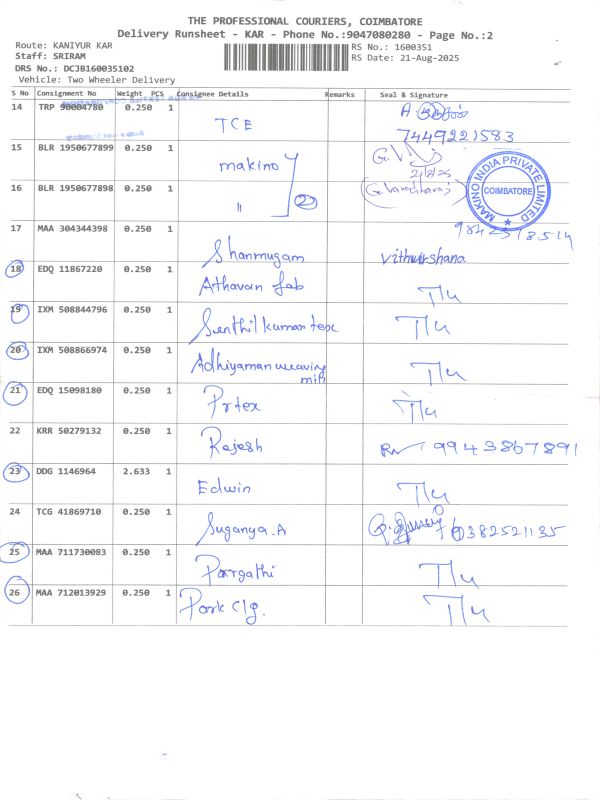 THE PROFESSIONAL COURIERS, COIMBATORE
Delivery Runsheet - KAR - Phone No.:9047080280 - Page No.:2
Route: KANIYUR KAR
RS No.: 1600351
Staff: SRIRAM
RS Date: 21-Aug-2025
DRS No.: DCJB160035102
Vehicle: Two Wheeler Delivery
S No Consignment No Weight PCS Consignee Details Remarks Seal & Signature
14 TRP 90004780 0.250 1 TCE 7449221583
15 BLR 1950677899 0.250 1 makino
16 BLR 1950677898 0.250 1 " 2
MAKINO INDIA PRIVATE LIMITED
COIMBATORE
17 MAA 304344398 0.250 1 Shanmugam
18 EDQ 11867220 0.250 1 Athavan fab T/u
19 IXM 508844796 0.250 1 Senthil kumar tex T/u
20 IXM 508866974 0.250 1 Adhiyaman weaving mill T/u
21 EDQ 15098180 0.250 1 Prtex T/u
22 KRR 50279132 0.250 1 Rajesh 9943867891
23 DDG 1146964 2.633 1 Edwin T/u
24 TCG 41869710 0.250 1 Suganya.A 9382521135
25 MAA 711730083 0.250 1 T/u
26 MAA 712013929 0.250 1 Park Clg. T/u